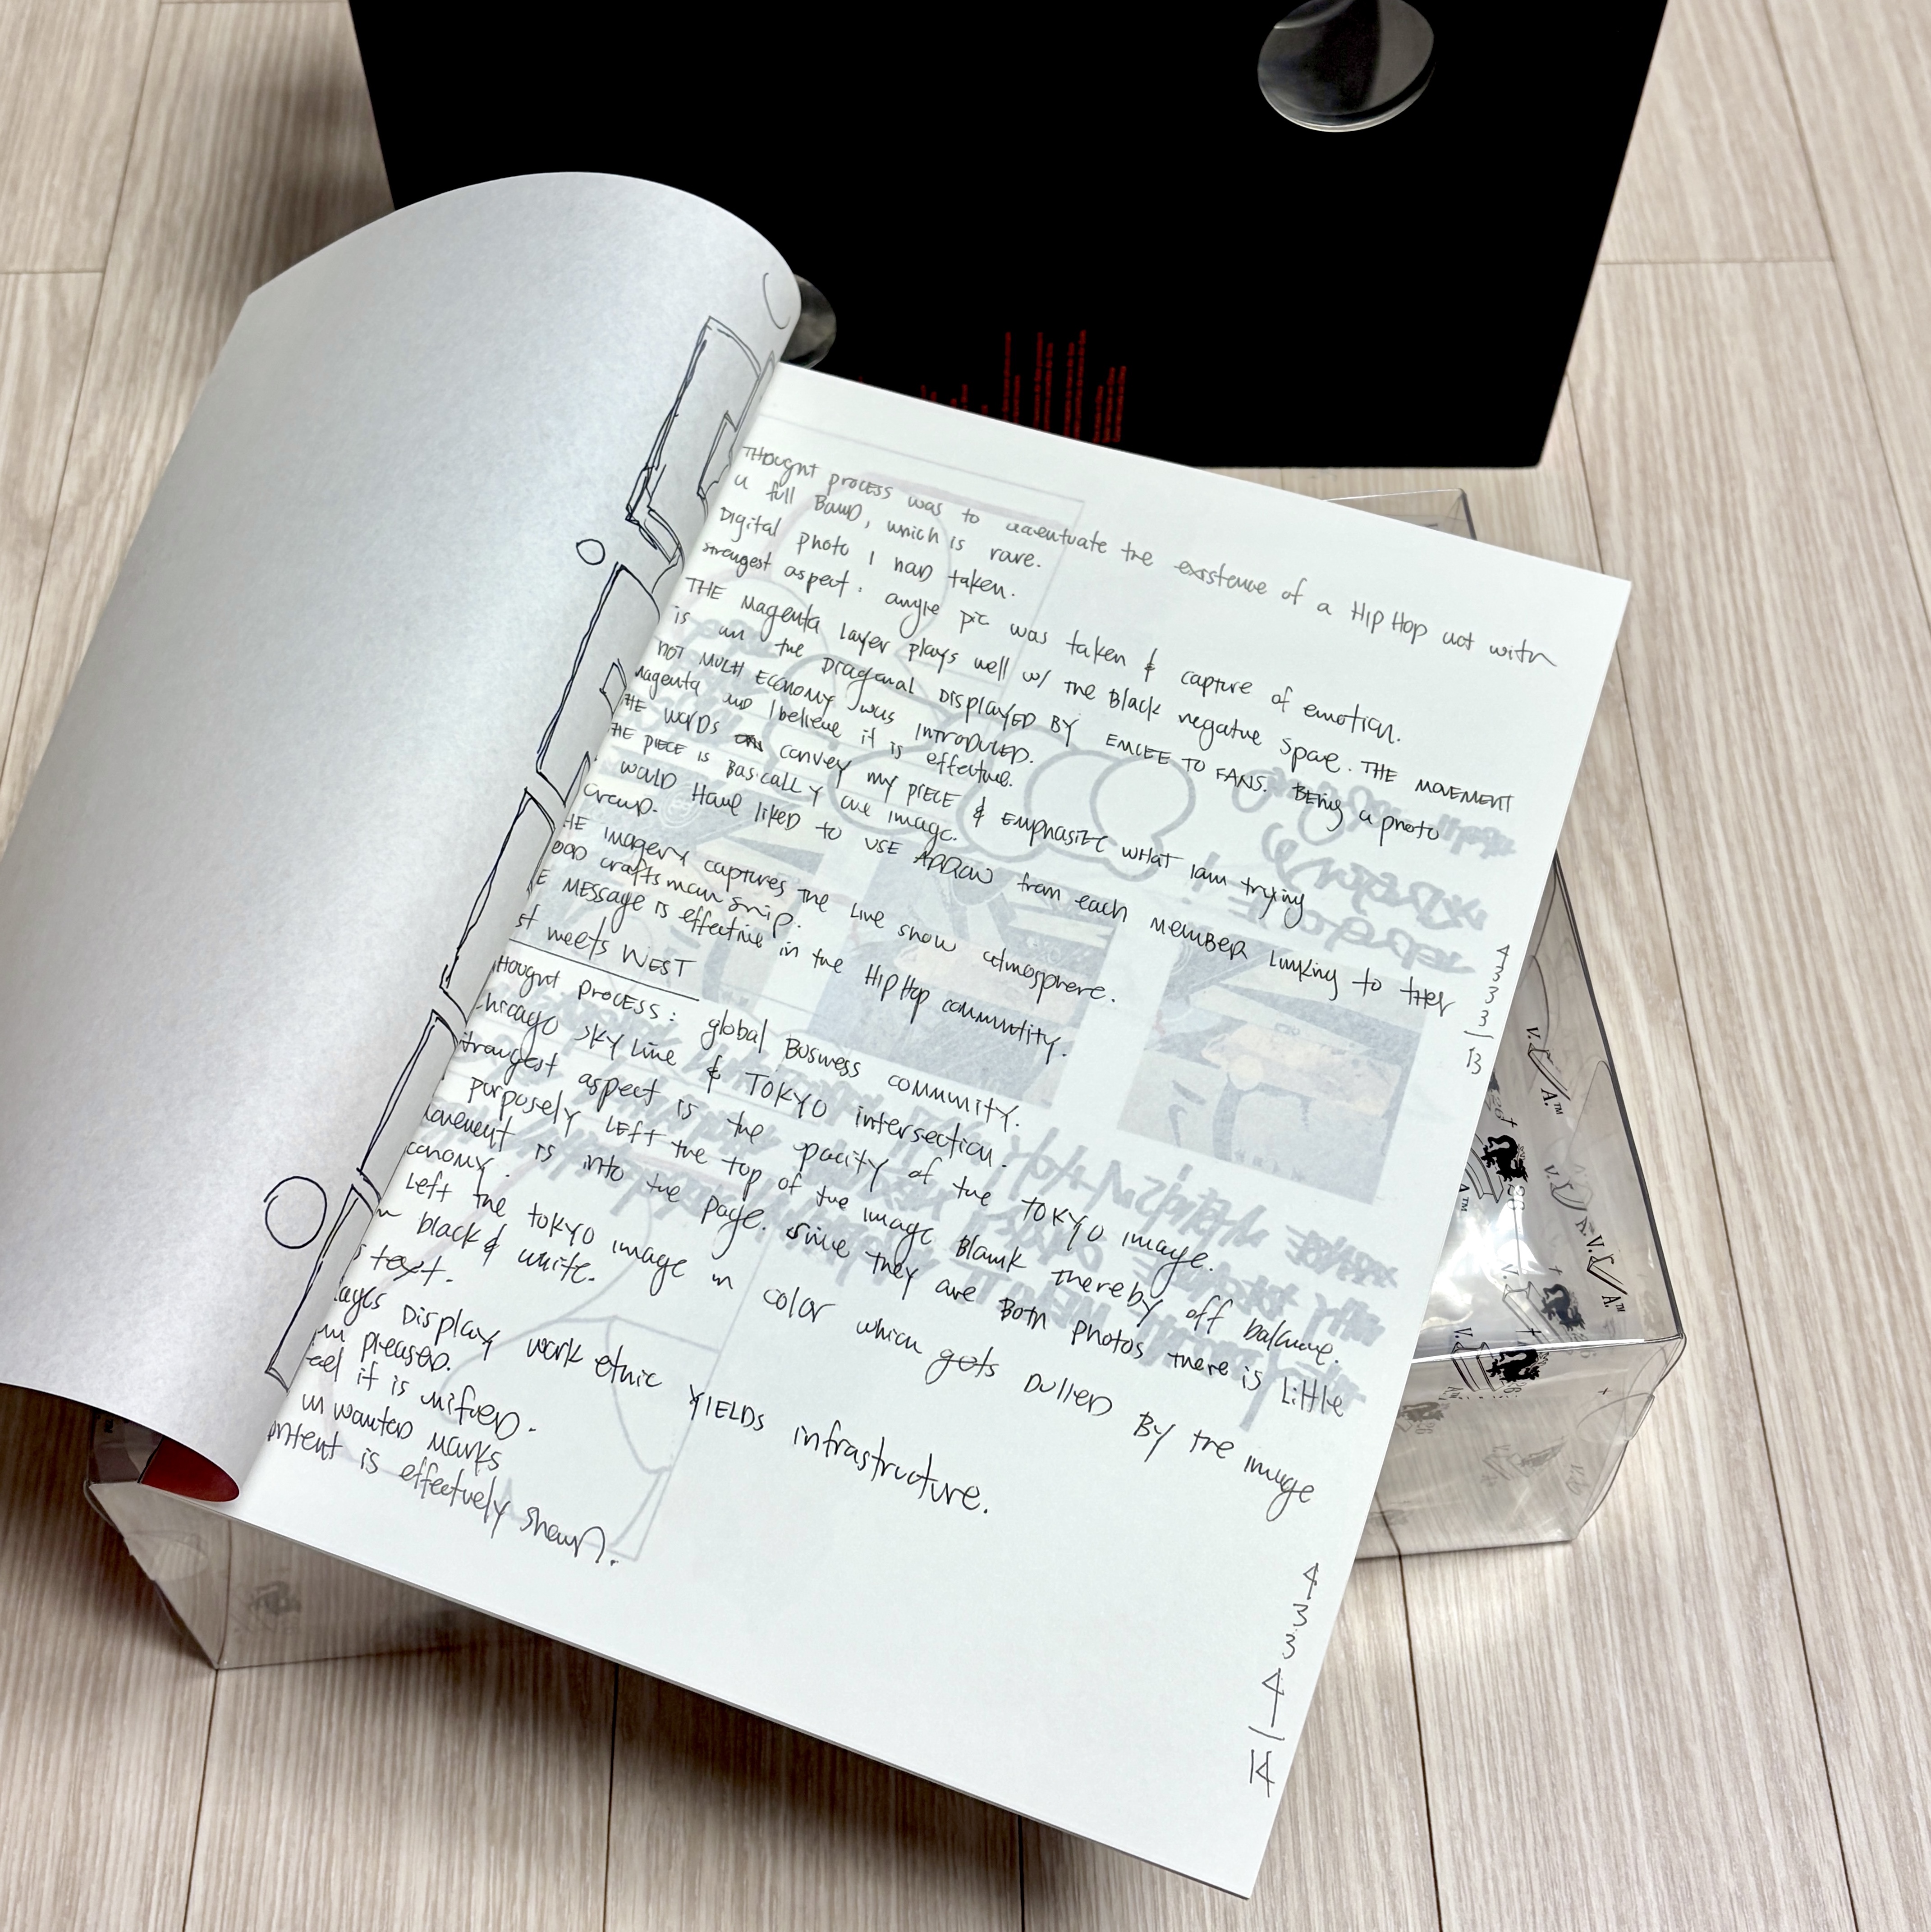 THOUGHT process was to accentuate the existence of a HIP HOP act with
a full BAND, which is rare.
Digital photo I HAD taken.
strongest aspect: angle pic was taken & capture of emotion.
THE Magenta layer plays well w/ THE Black negative space. THE MOVEMENT
is in the DIAGONAL DISPLAYED BY EMCEE TO FANS. BEing a photo
NOT MUCH ECONOMY was INTRODUCED.
Magenta and I believe it is effective.
THE WORDS convey my PIECE & EMPHASIZE WHAT I am trying
HE PIECE IS BASICALLY one image.
WOULD HAVE LIKED to USE ARROW from each MEMBER LINKING to THEIR
Group.
HE IMAGERY captures THE LIVE show atmosphere.
OOD craftsman ship.
E MESSAGE IS effective in the HIP HOP community.
st meets WEST
HOUGHT PROCESS: global Business community.
hicago SKYLINE & TOKYO intersection.
strongest aspect is the opacity of the TOKYO image.
purposely LEFT the top of the image Blank thereby off balance.
ovement is into the page. since they are Both photos there is Little
conomy.
Left the TOKYO image in color which gets DULLED BY the image
in black & white.
s text.
ayes DISPLAY work ethic YIELDs infrastructure.
m pleased.
eel it is unified.
un wanted Marks
ontent is effectively shown.
4
3
3
3
13
4
3
3
4
14
V.
A.™